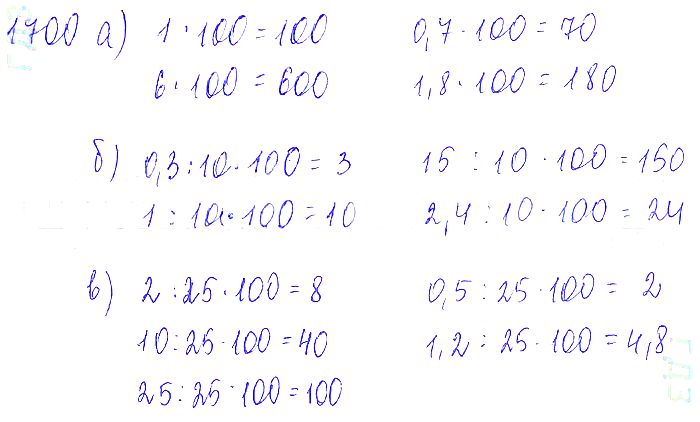 1700 а) 1 · 100 = 100 0,7 · 100 = 70
6 · 100 = 600 1,8 · 100 = 180
б) 0,3 : 10 · 100 = 3 15 : 10 · 100 = 150
1 : 10 · 100 = 10 2,4 : 10 · 100 = 24
в) 2 : 25 · 100 = 8 0,5 : 25 · 100 = 2
10 : 25 · 100 = 40 1,2 : 25 · 100 = 4,8
25 : 25 · 100 = 100
ГДЗ
ГДЗ